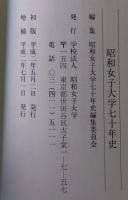 昭和女子大学七十年史
編集 昭和女子大学七十年史編集委員会
発行 学校法人 昭和女子大学
〒一五四 東京都世田谷区太子堂一-七-五七
電話〇三(四一一)五一
初版 平成二年五月二日発行
増補 平成二年七月一日発行